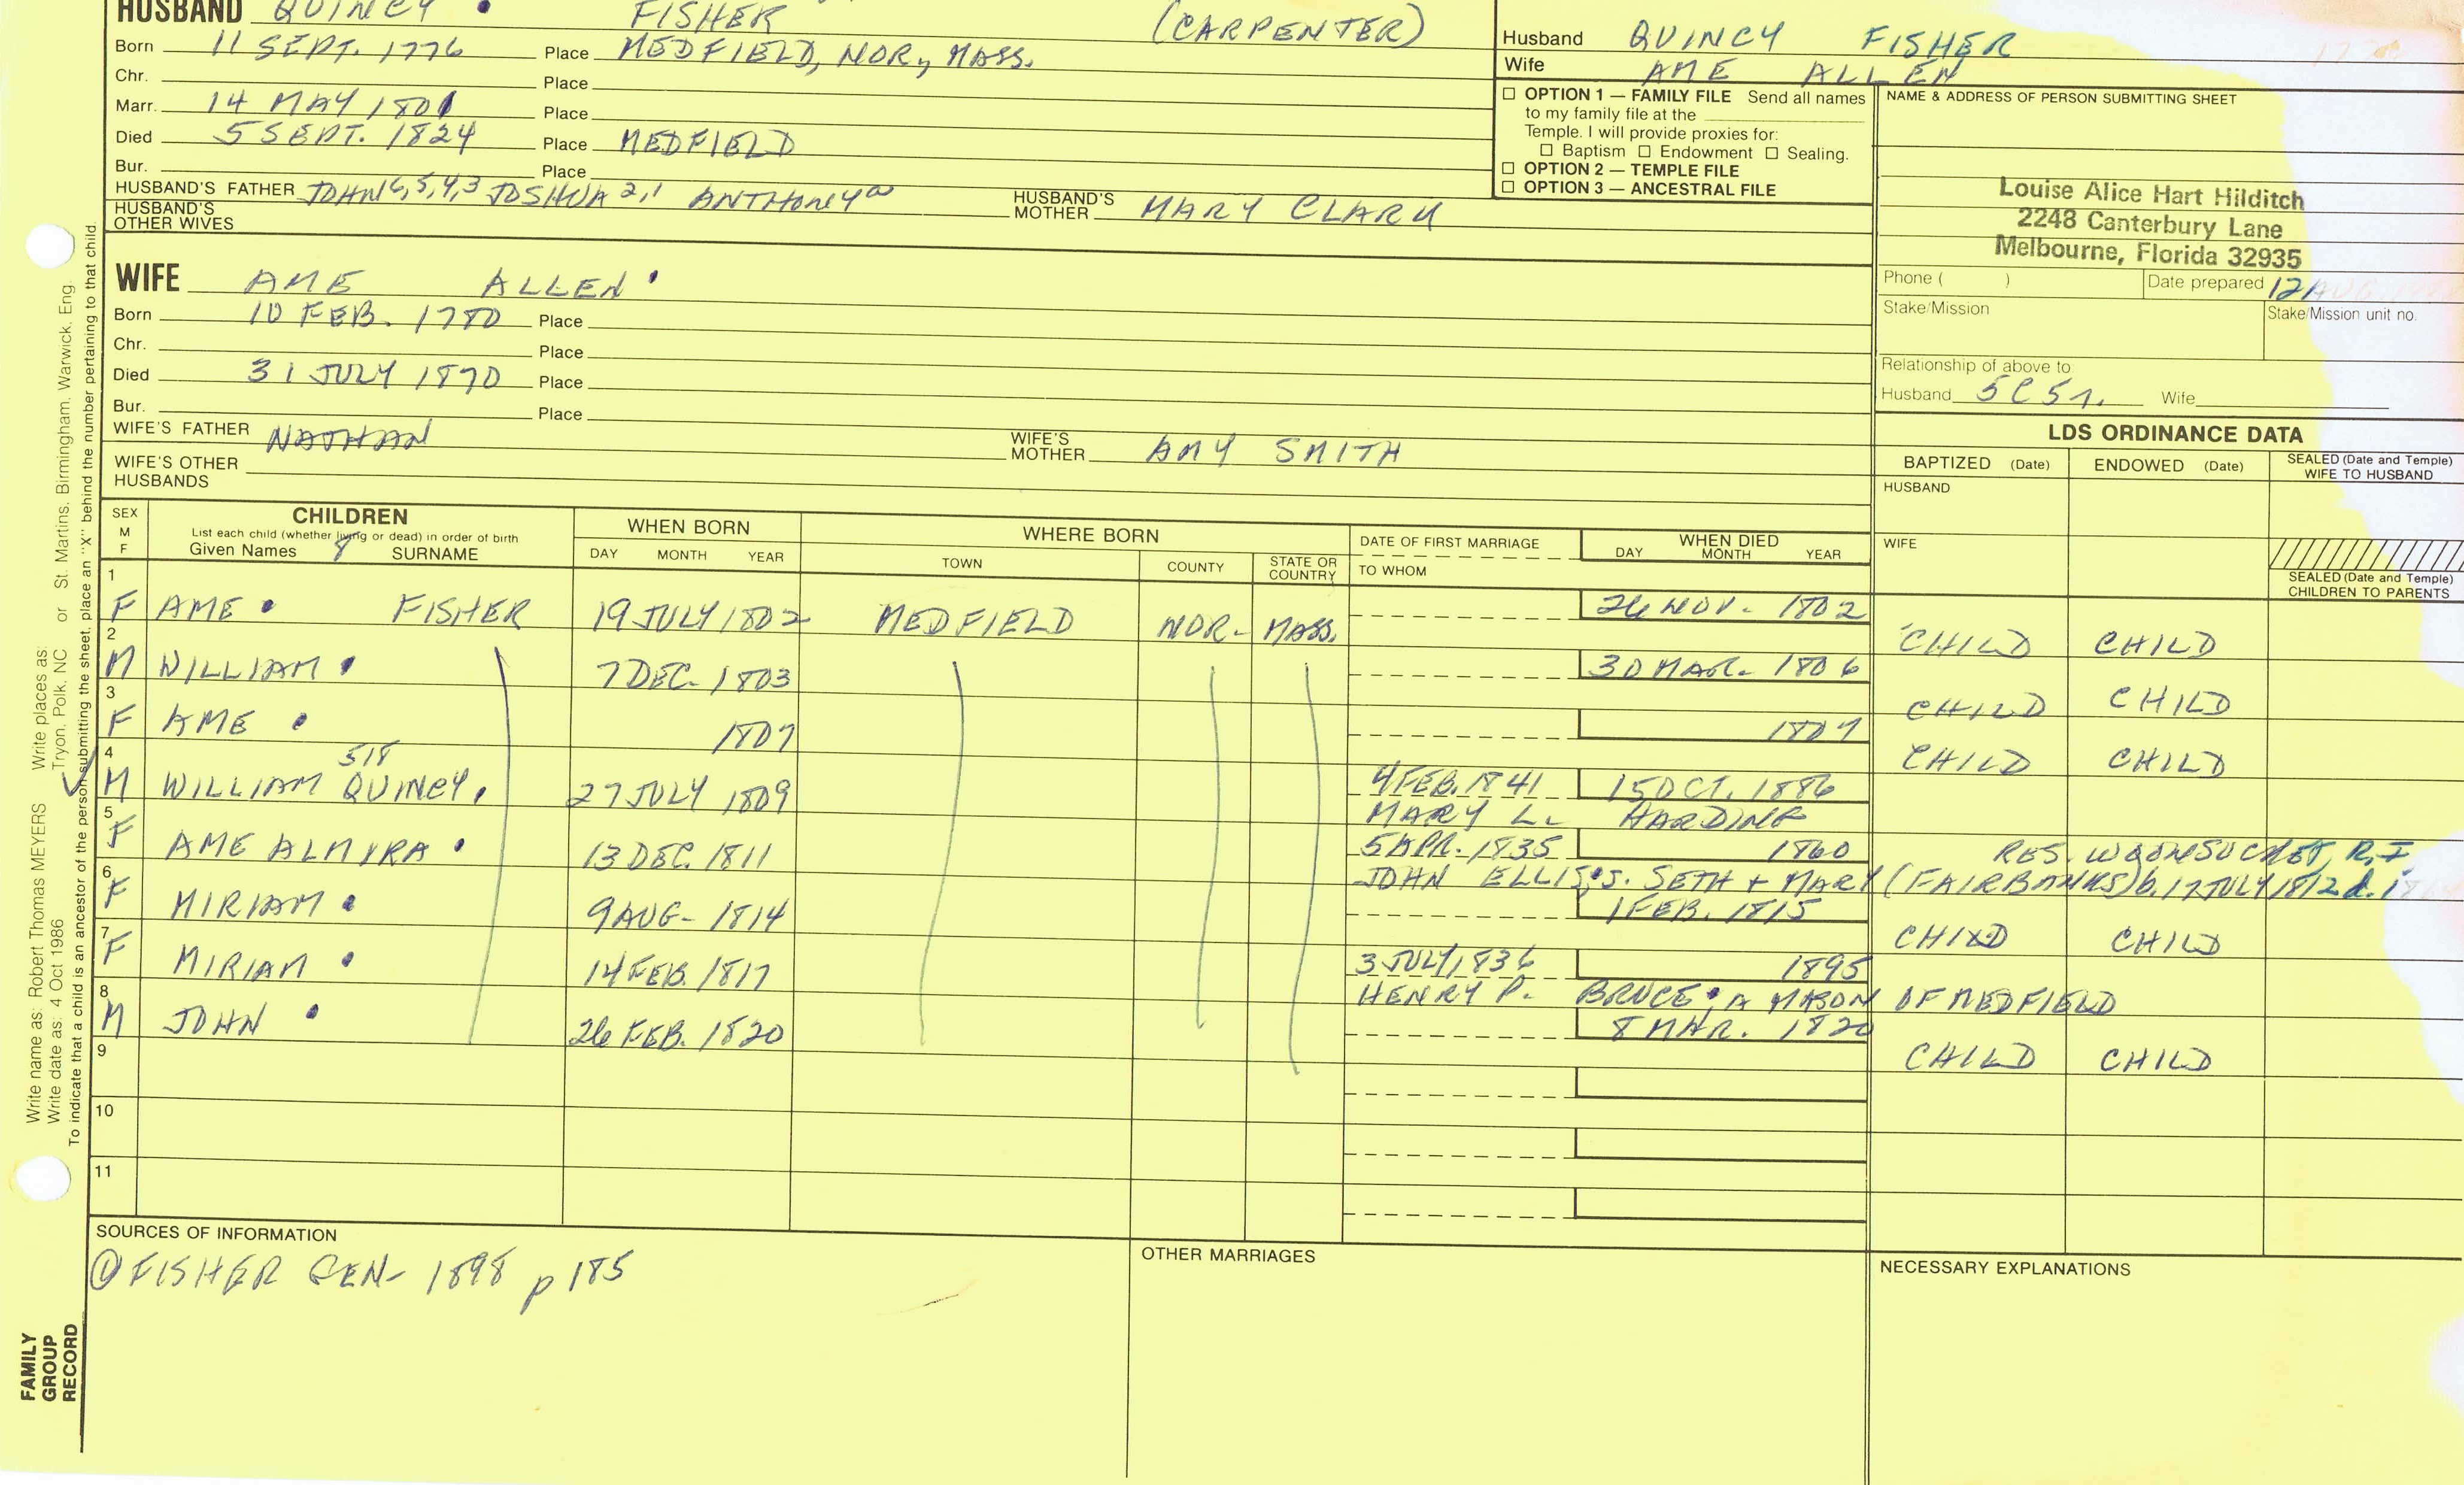 HUSBAND QUINCY FISHER (CARPENTER)
Born 11 SEPT. 1776 Place MEDFIELD, NOR., MASS.
Chr. Place
Marr. 14 MAY 1801 Place
Died 5 SEPT. 1824 Place MEDFIELD
Bur. Place
HUSBAND'S FATHER JOHN 6,5,4,3 JOSHUA 2,1 ANTHONY HUSBAND'S MOTHER MARY CLARK
HUSBAND'S OTHER WIVES
WIFE AME ALLEN
Born 10 FEB. 1780 Place
Chr. Place
Died 31 JULY 1870 Place
Bur. Place
WIFE'S FATHER NATHAN WIFE'S MOTHER AMY SMITH
WIFE'S OTHER HUSBANDS
Husband QUINCY FISHER
Wife AME ALLEN
☐ OPTION 1 — FAMILY FILE Send all names
to my family file at the
Temple. I will provide proxies for:
☐ Baptism ☐ Endowment ☐ Sealing.
☐ OPTION 2 — TEMPLE FILE
☐ OPTION 3 — ANCESTRAL FILE
NAME & ADDRESS OF PERSON SUBMITTING SHEET
Louise Alice Hart Hilditch
2248 Canterbury Lane
Melbourne, Florida 32935
Phone ( ) Date prepared 12 AUG.
Stake/Mission Stake/Mission unit no.
Relationship of above to:
Husband 5C5r. Wife
LDS ORDINANCE DATA
BAPTIZED (Date) ENDOWED (Date) SEALED (Date and Temple) WIFE TO HUSBAND
HUSBAND
WIFE
SEALED (Date and Temple) CHILDREN TO PARENTS
SEX M F
CHILDREN
List each child (whether living or dead) in order of birth
Given Names 8 SURNAME
WHEN BORN
DAY MONTH YEAR
WHERE BORN
TOWN COUNTY STATE OR COUNTRY
DATE OF FIRST MARRIAGE
TO WHOM
WHEN DIED
DAY MONTH YEAR
1 F AME FISHER 19 JULY 1802 MEDFIELD NOR. MASS. 26 NOV. 1802 CHILD CHILD
2 M WILLIAM 7 DEC. 1803 30 MAR. 1806 CHILD CHILD
3 F AME 1807 1807 CHILD CHILD
518
4 M WILLIAM QUINCY 27 JULY 1809 4 FEB. 1841 15 OCT. 1886
MARY L. HARDING
5 F AME ALMIRA 13 DEC. 1811 5 APR. 1835 1860 RES. WOONSOCKET, R.I
JOHN ELLIS, S. SETH + MARY (FAIRBANKS) b. 17 JULY 1812 d.
6 F MIRIAM 9 AUG. 1814 1 FEB. 1815 CHILD CHILD
7 F MIRIAM 14 FEB. 1817 3 JULY, 1836 1895
HENRY P. BRUCE, A MASON OF MEDFIELD
8 M JOHN 26 FEB. 1820 8 MAR. 1820 CHILD CHILD
9
10
11
SOURCES OF INFORMATION
① FISHER GEN- 1898 p 185
OTHER MARRIAGES
NECESSARY EXPLANATIONS
Write name as: Robert Thomas MEYERS Write places as: Tryon, Polk, NC or St. Martins, Birmingham, Warwick, Eng.
Write date as: 4 Oct 1986
To indicate that a child is an ancestor of the person submitting the sheet, place an "X" behind the number pertaining to that child.
FAMILY
GROUP
RECORD